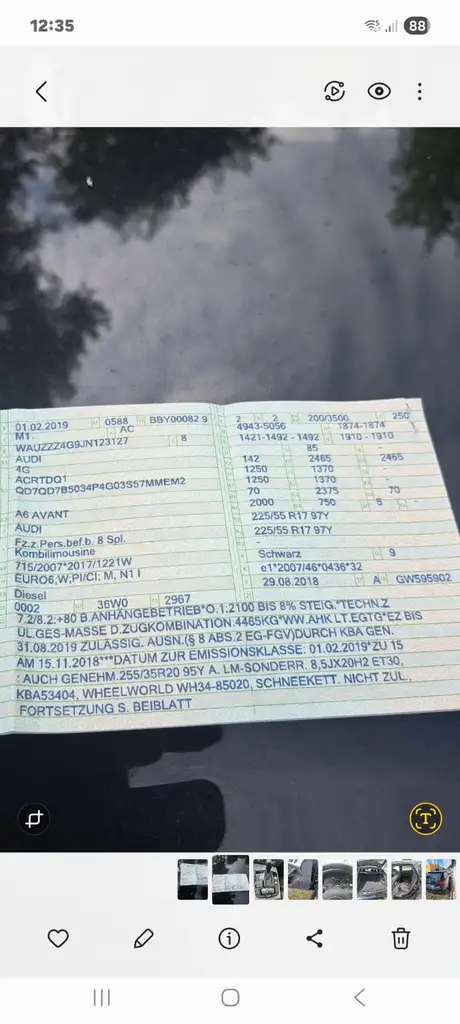 12:35
88
01.02.2019 0588 BBY00082 9
M1 AC
WAUZZZ4G9JN123127 8
AUDI
4G
ACRTDQ1
QD7QD7B5034P4G03S57MMEM2
A6 AVANT
AUDI
Fz.z.Pers.bef.b. 8 Spl.
Kombilimousine
715/2007*2017/1221W
EURO6;W;PI/CI; M, N1 I
Diesel
0002 36W0 2967
2 2 200/3500 250
4943-5056 1874-1874
1421-1492 - 1492 1910 - 1910
85
142 2465 2465
1250 1370 -
1250 1370 -
70 2375 70
2000 750 5 -
225/55 R17 97Y
225/55 R17 97Y
-
Schwarz 9
e1*2007/46*0436*32
29.08.2018 A GW595902
7.2/8.2:+80 B.ANHÄNGEBETRIEB*O.1:2100 BIS 8% STEIG.*TECHN.Z
UL.GES-MASSE D.ZUGKOMBINATION:4465KG*WW.AHK LT.EGTG*EZ BIS
31.08.2019 ZULÄSSIG. AUSN.(§ 8 ABS.2 EG-FGV)DURCH KBA GEN.
AM 15.11.2018***DATUM ZUR EMISSIONSKLASSE: 01.02.2019*ZU 15
: AUCH GENEHM.255/35R20 95Y A. LM-SONDERR. 8,5JX20H2 ET30,
KBA53404, WHEELWORLD WH34-85020, SCHNEEKETT. NICHT ZUL.,
FORTSETZUNG S. BEIBLATT
T